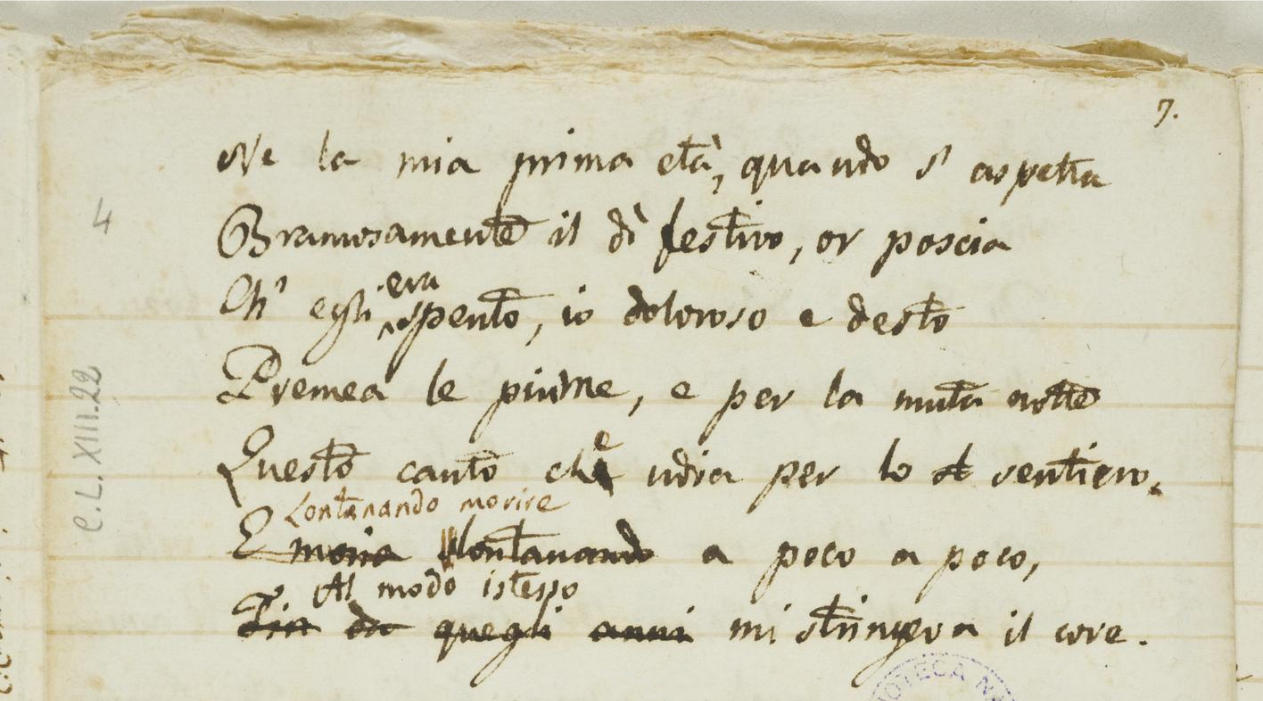 7.
Ne la mia prima età, quando s' aspetta
4
Bramosamente il dì festivo, or poscia
era
Ch' egli spento, io doloroso e desto
Premea le piume, e per la muta notte
C.L.XIII.22
Questo canto che udia per lo sentiero,
Lontanando morire
E moria lontanando a poco a poco,
Al modo istesso
Fin da quegli anni mi stringeva il core.
OTECA NA